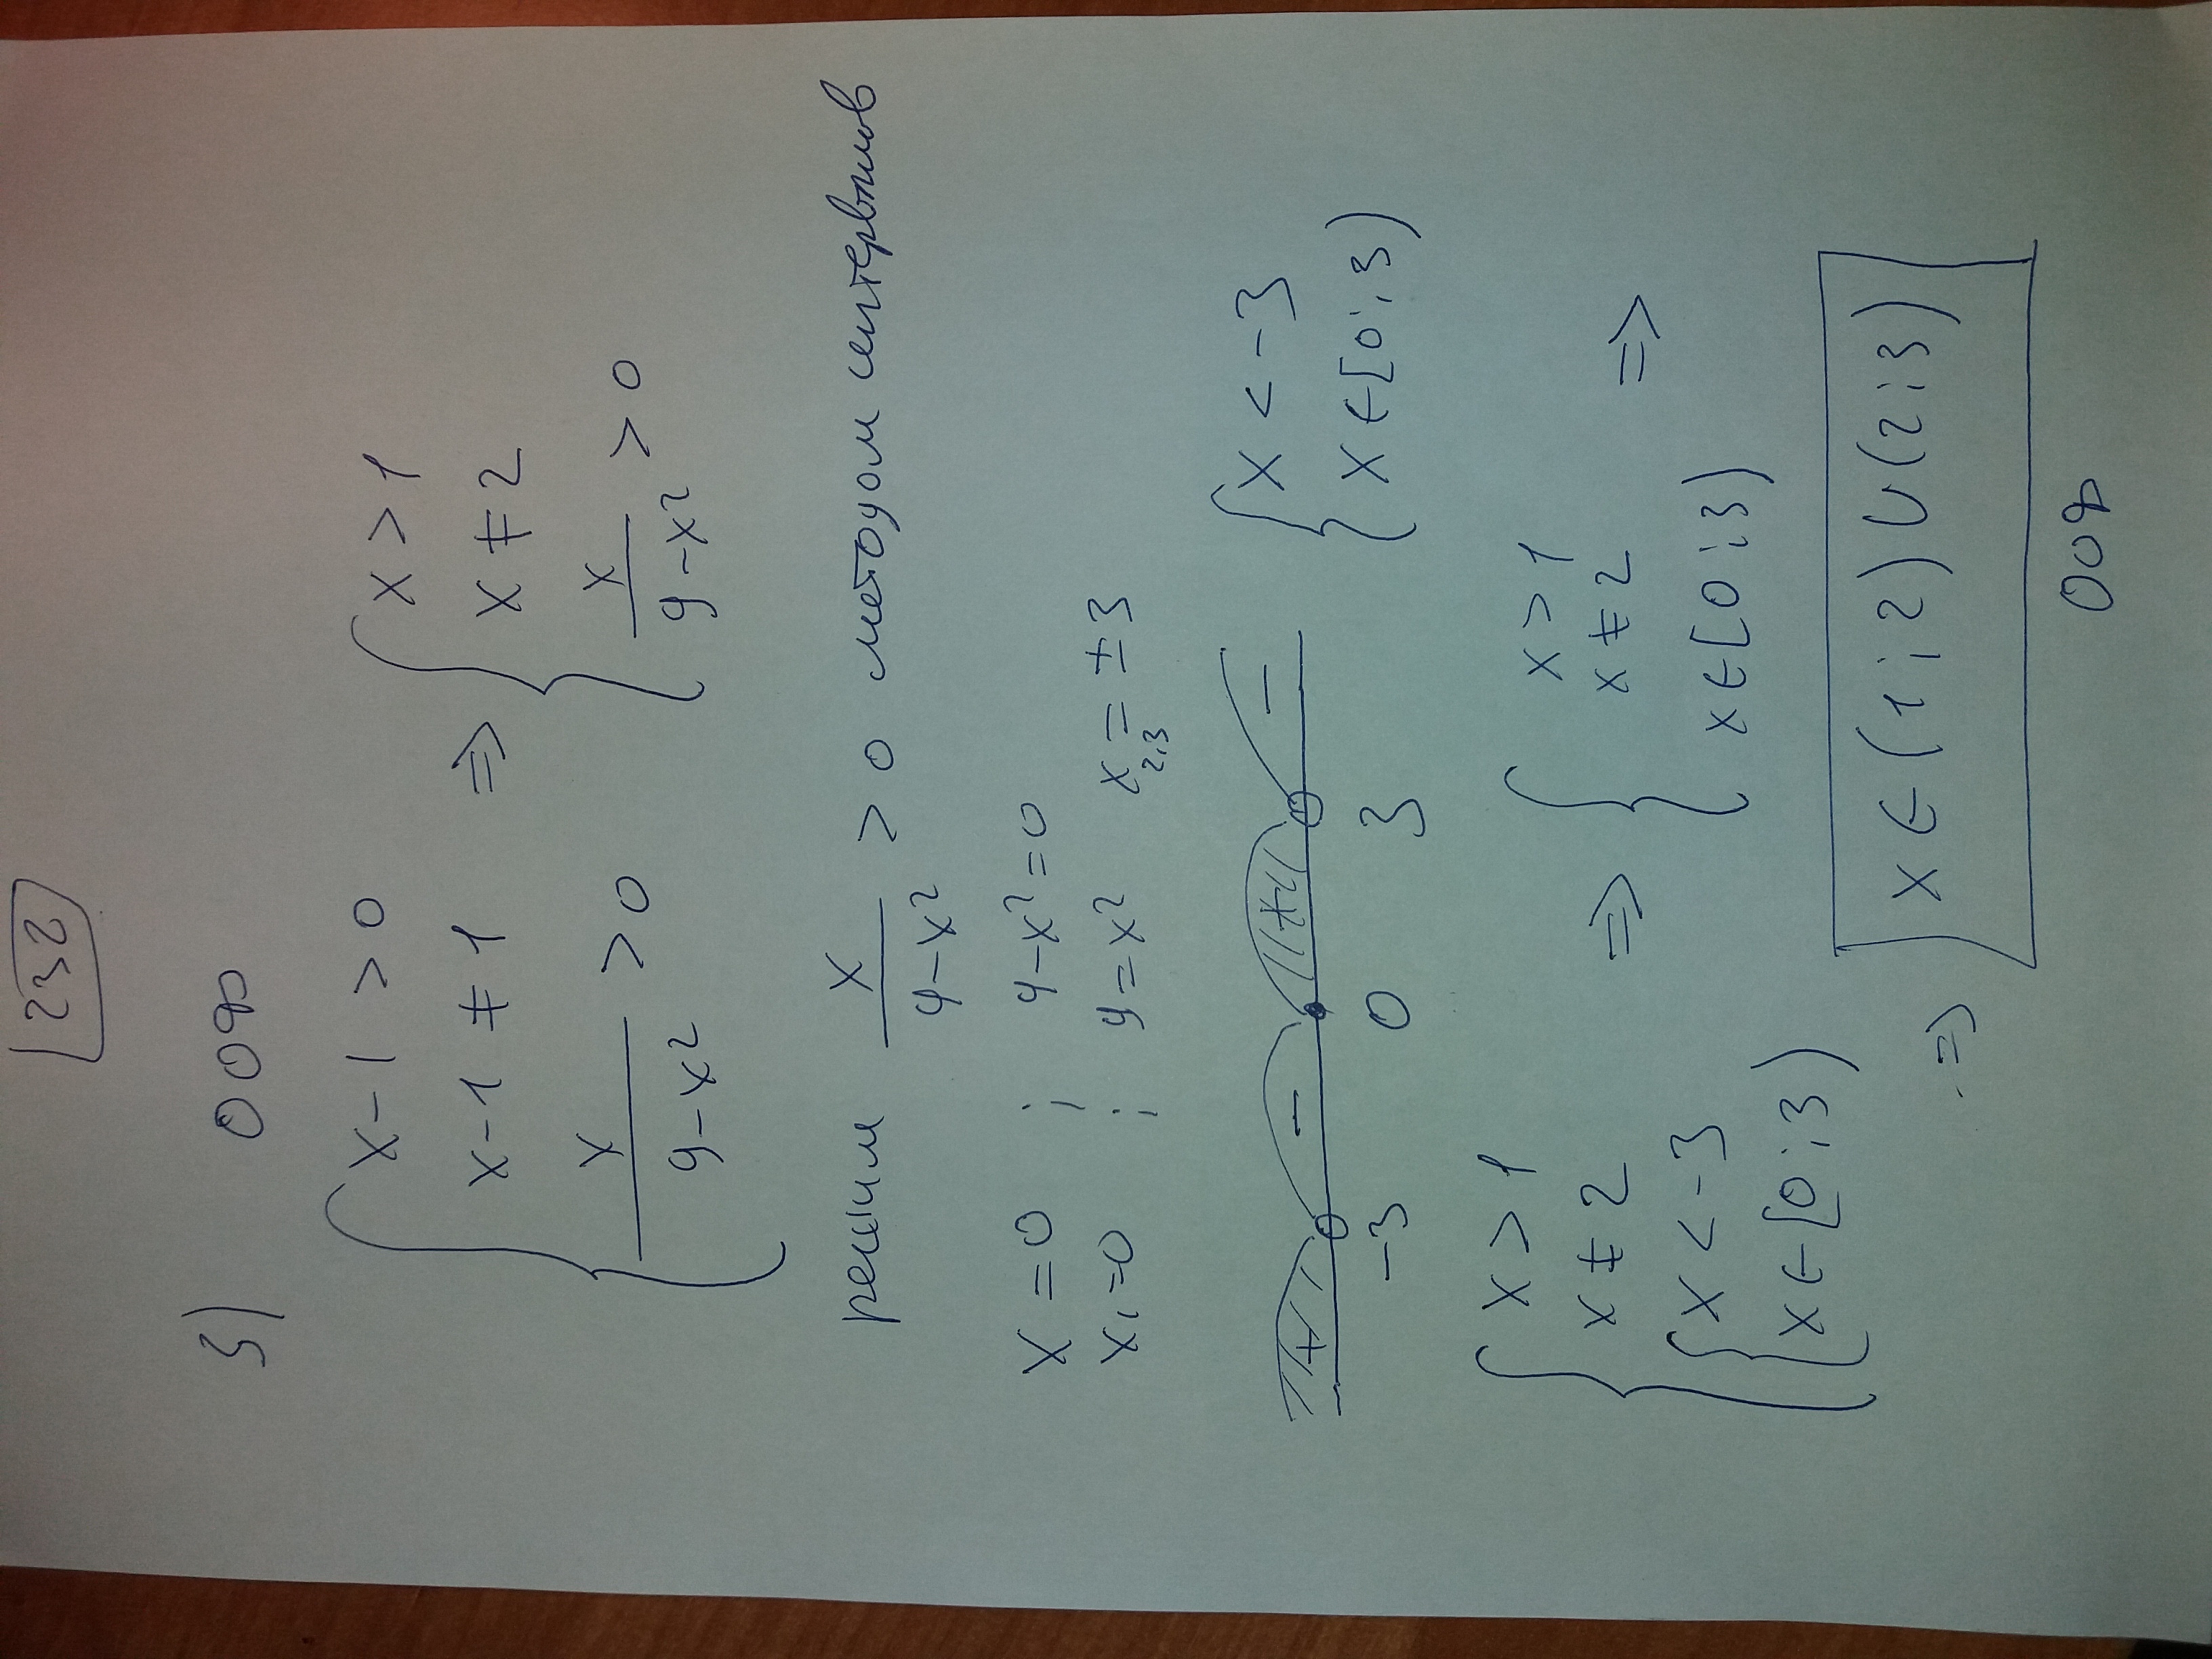 232
3) ООФ
{ x-1 > 0 => { x > 1
x-1 ≠ 1 x ≠ 2
x/(9-x²) > 0 x/(9-x²) > 0
решим x/(9-x²) > 0 методом интервалов
x = 0 ; 9-x² = 0
x₁ = 0 ; 9 = x² x₂,₃ = ±3
+ - + - { x < -3
-3 0 3 x ∈ [0;3)
{ x > 1 => { x > 1
x ≠ 2 x ≠ 2 =>
{ x < -3 x ∈ [0;3)
x ∈ [0;3)
=> x ∈ (1;2) ∪ (2;3)
ООФ